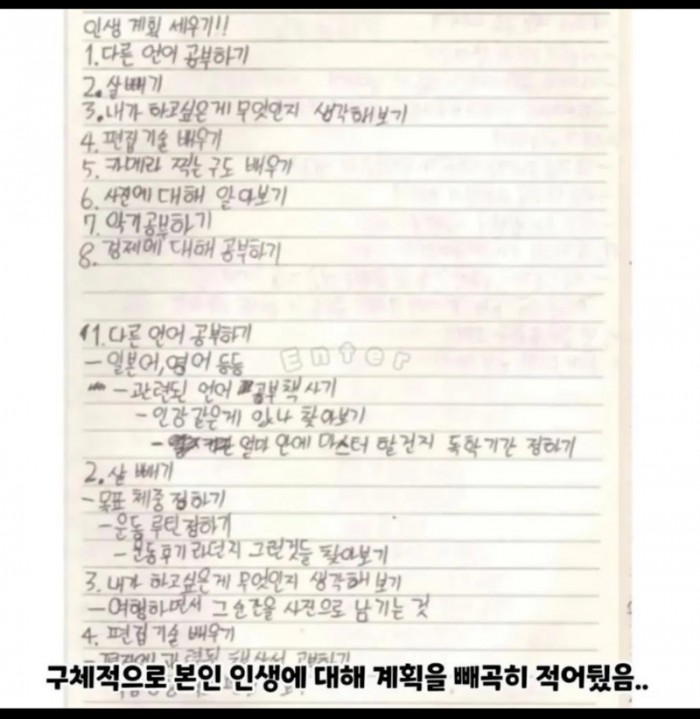 인생 계획 세우기!!
1. 다른 언어 공부하기
2. 살빼기
3. 내가 하고싶은게 무엇인지 생각해보기
4. 편집기술 배우기
5. 카메라 찍는 구도 배우기
6. 사진에 대해 알아보기
7. 악기공부하기
8. 경제에 대해 공부하기
1. 다른 언어 공부하기
- 일본어, 영어 등등
Enter
- 관련된 언어 공부책 사기
- 인강같은게 있나 찾아보기
- 얼마 안에 마스터 할건지 독학기간 정하기
2. 살 빼기
- 목표 체중 정하기
- 운동 루틴정하기
- 운동후기라던지 그런것들 찾아보기
3. 내가 하고싶은게 무엇인지 생각해 보기
- 여행하면서 그순간을 사진으로 남기는 것
4. 편집기술 배우기
구체적으로 본인 인생에 대해 계획을 빼곡히 적어뒀음..